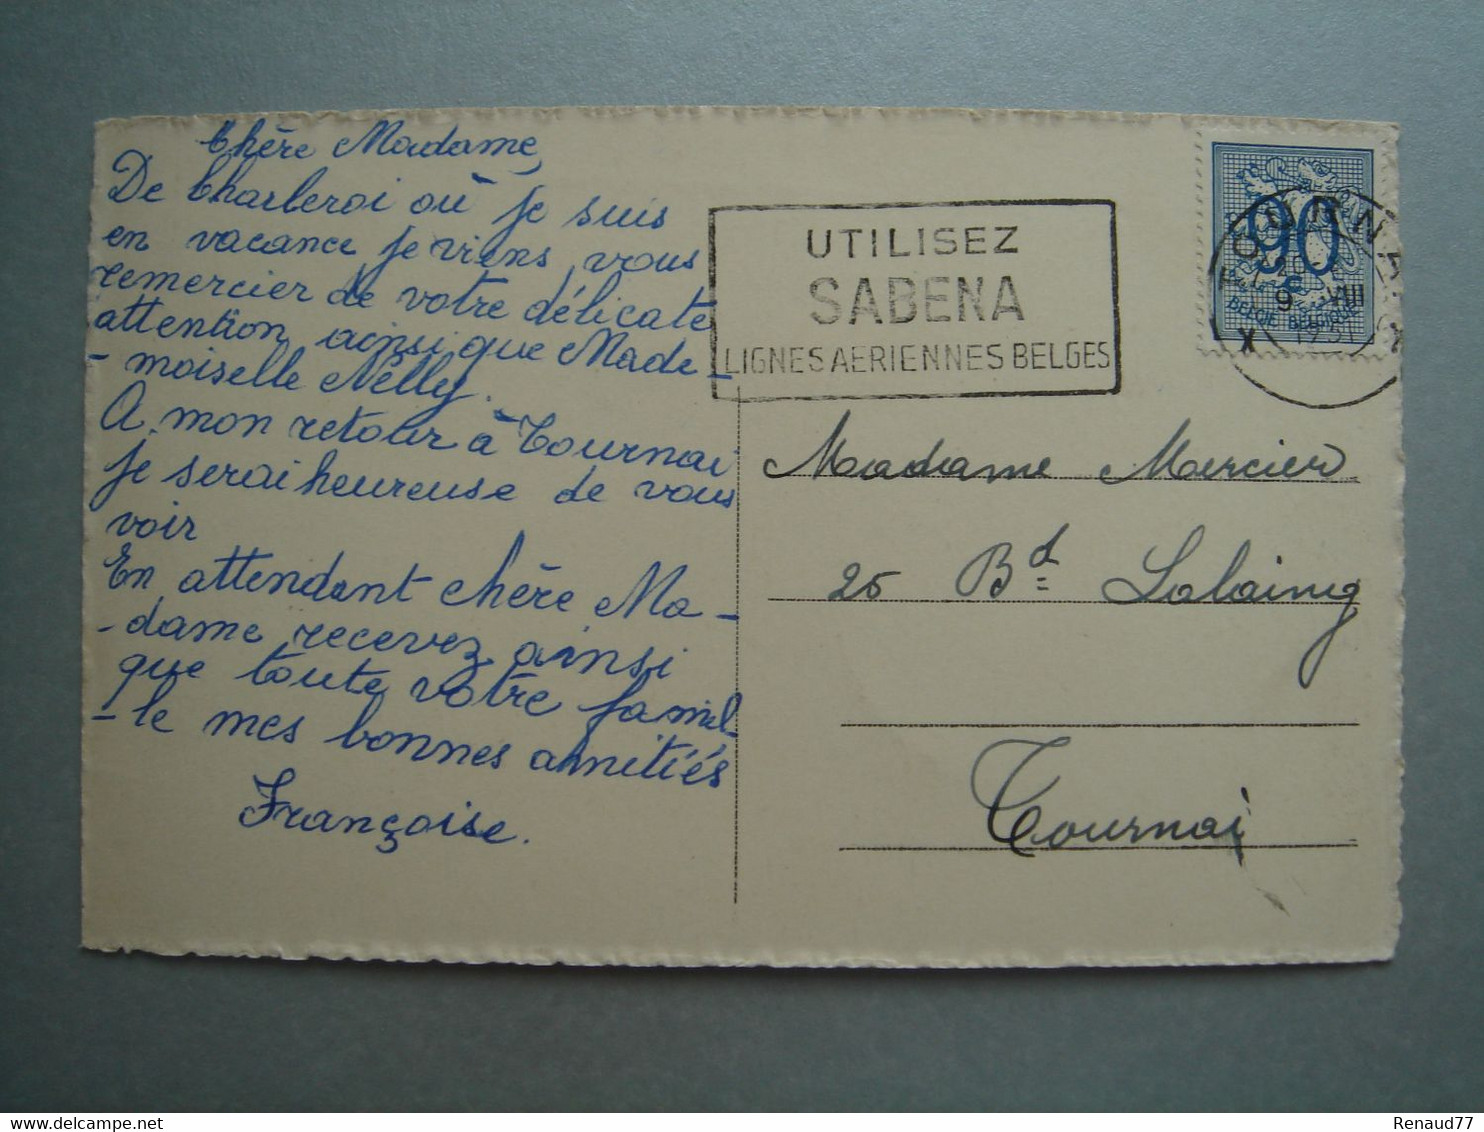 Chère Madame,
De Charleroi où je suis
en vacance je viens vous
remercier de votre délicate
attention ainsi que Made-
-moiselle Nelly.
A mon retour à Tournai
je serai heureuse de vous
voir
En attendant chère Ma-
-dame recevez ainsi
que toute votre famil
-le mes bonnes amitiés
Françoise.
UTILISEZ
SABENA
LIGNES AERIENNES BELGES
90
BELGIE BELGIQUE
9 VIII
1951
Madame Mercier
25 Bd Lalaing
Tournai
Renaud77